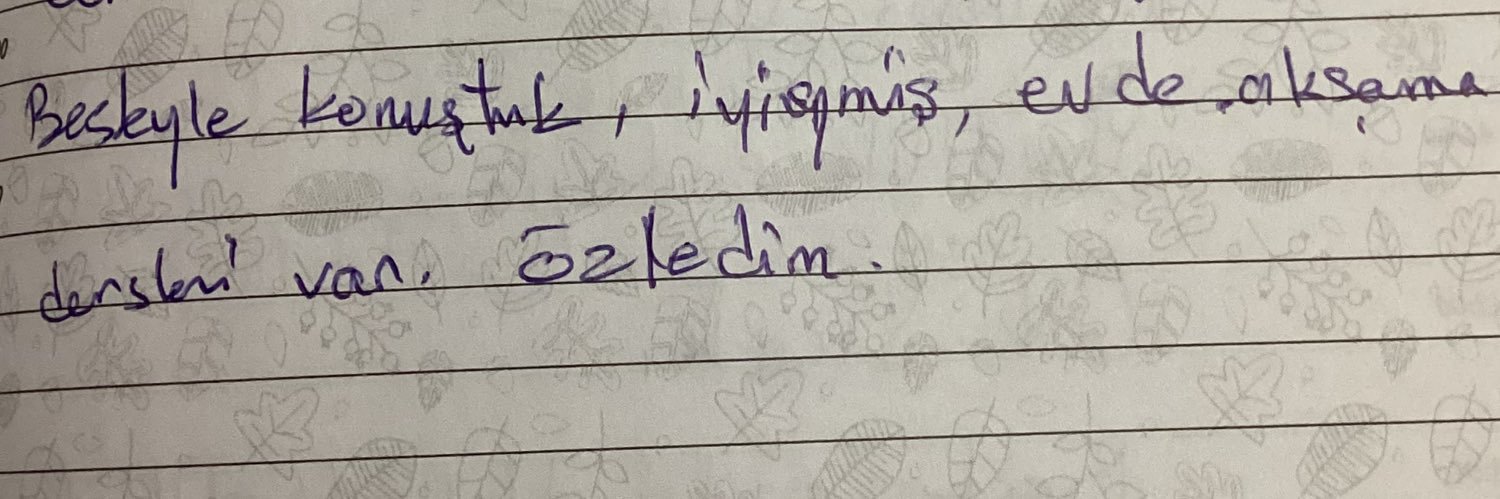 konuştuk, iyiymiş, evde. akşama
dersleri var. Özledim.